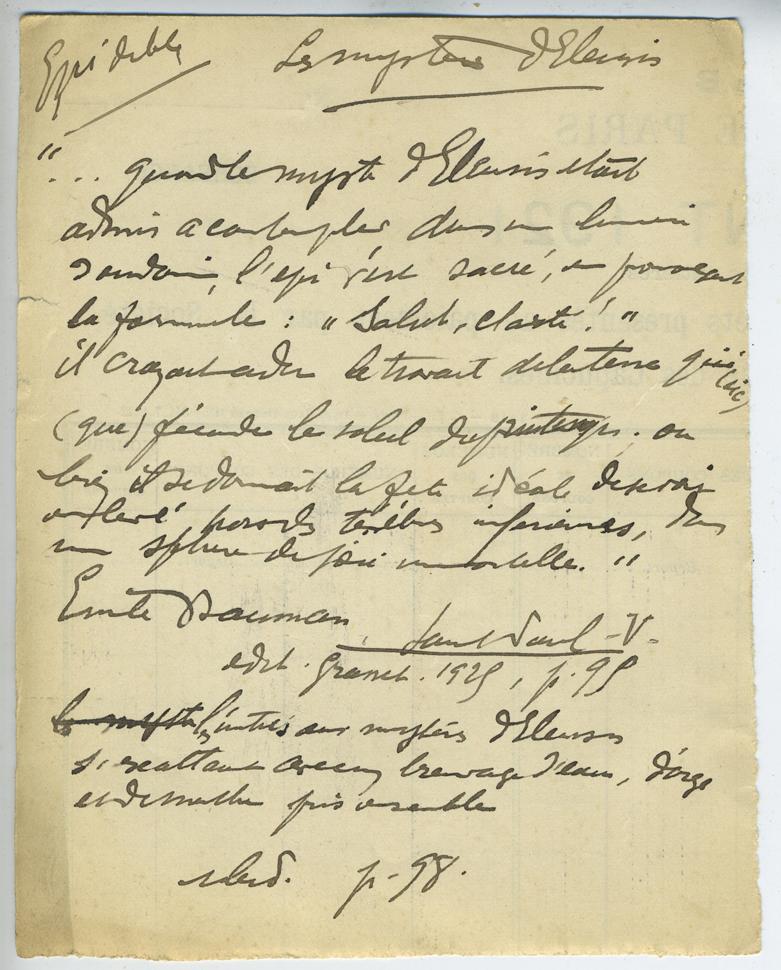 Epi de blé
Les mystères d'Eleusis
"... quand le myste d'Eleusis était
admis à contempler dans un lumière
soudain, l'épi vert sacré, en prononçant
la formule : "Salut, clarté!"
il croyait aider le travail de la terre qui (sic)
(que) féconde le soleil du printemps; ou
bien il se donnait la fête idéale de se voir
enlevé hors des ténèbres inférieures, dans
une sphère de joie immortelle."
Emile Baumann, Saint Paul - V -
édit. Grasset. 1925, p. 95
le myste les initiés aux mystères d'Eleusis
s'exaltant avec un breuvage d'eau, d'orge
et de menthe pris ensemble
ibid. p. 98.